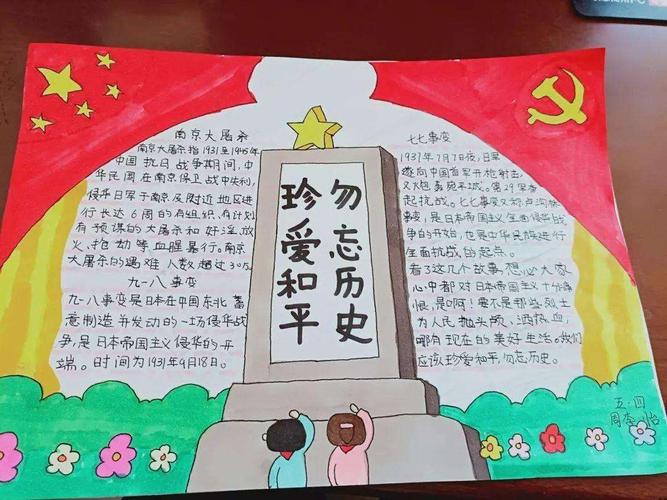 南京大屠杀
南京大屠杀指1931至1945年
中国抗日战争期间,中
华民国在南京保卫战中失利,
侵华日军于南京及附近地区进
行长达6周的有组织、有计划
有预谋的大屠杀和奸淫、放
火、抢劫等血腥暴行。南京
大屠杀的遇难人数超过30万
九·一八事变
九·一八事变是日本在中国东北蓄
意制造并发动的一场侵华战
争,是日本帝国主义侵华的开
端。时间为1931年9月18日。
勿忘历史
珍爱和平
七七事变
1937年7月7日夜,日军
遂向中国守军开枪射击,
又炮轰宛平城。第29军奋
起抗战。七七事变又称卢沟桥
事变,是日本帝国主义全面侵华战
争的开始,也是中华民族进行
全面抗战的起点。
看了这几个故事,想必大家
心中都对日本帝国主义十分痛
恨,是啊!要不是那些烈士
为人民抛头颅、洒热血,
哪有现在的美好生活。我们
应该珍爱和平,勿忘历史。
五.四
周 怡